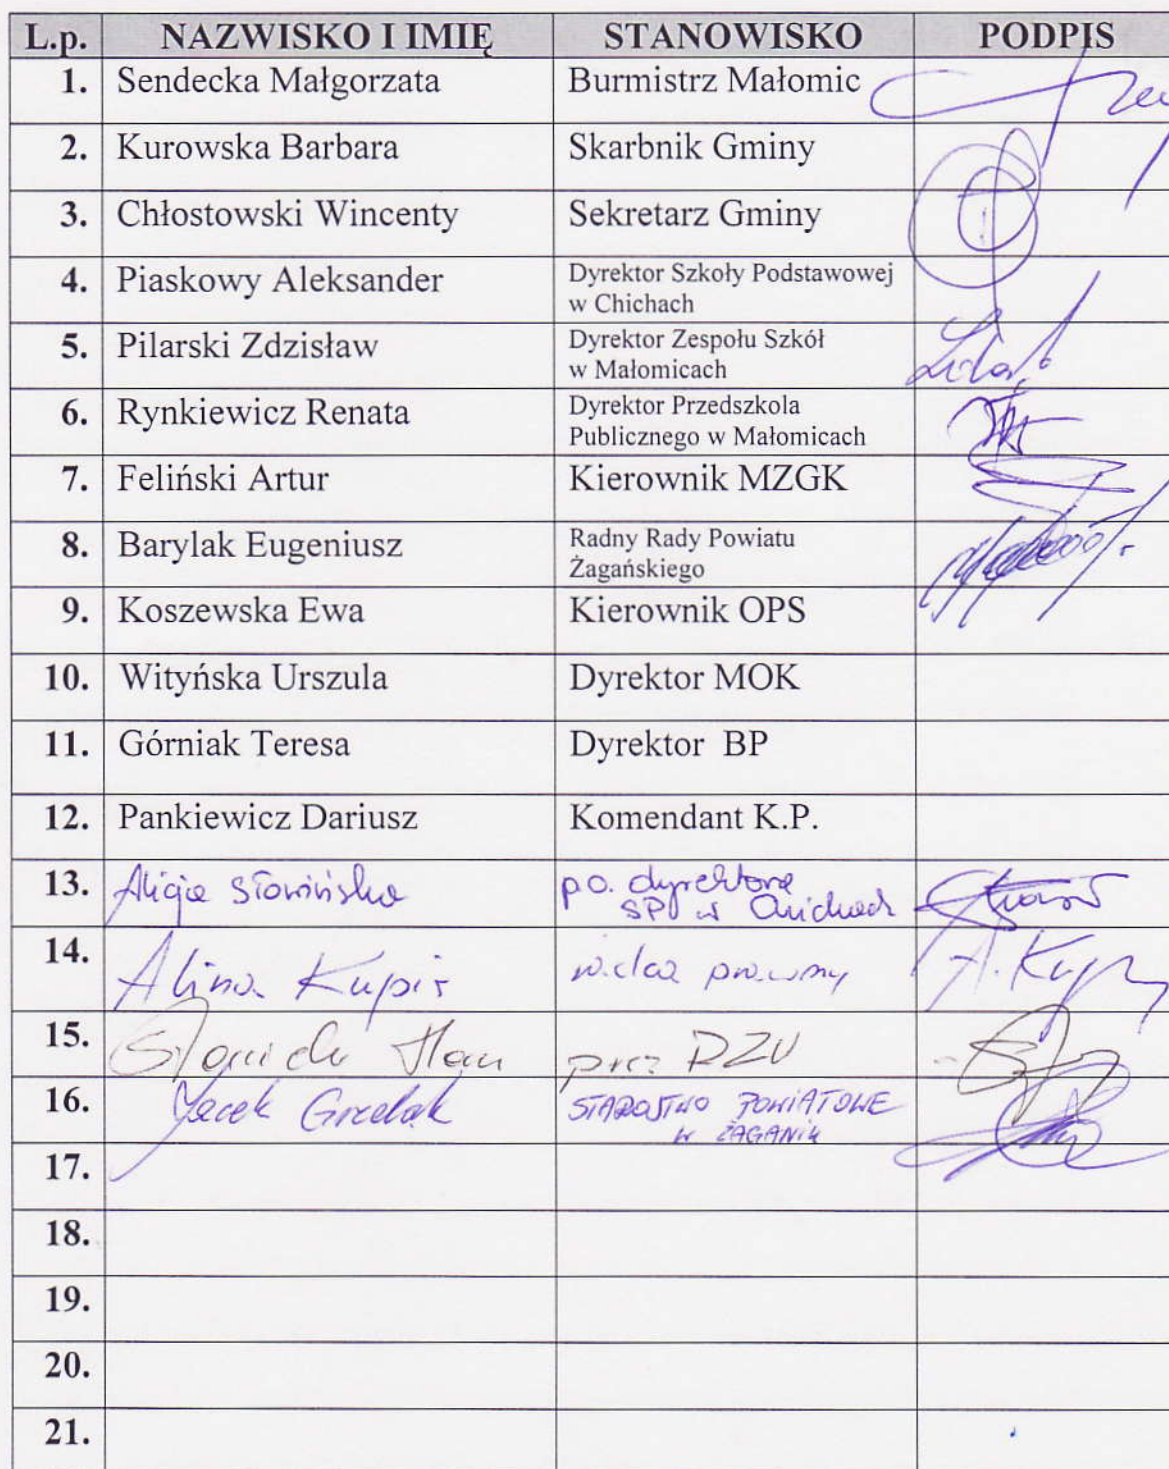 L.p. NAZWISKO I IMIĘ STANOWISKO PODPIS
1. Sendecka Małgorzata Burmistrz Małomic
2. Kurowska Barbara Skarbnik Gminy
3. Chłostowski Wincenty Sekretarz Gminy
4. Piaskowy Aleksander Dyrektor Szkoły Podstawowej
w Chichach
5. Pilarski Zdzisław Dyrektor Zespołu Szkół
w Małomicach
6. Rynkiewicz Renata Dyrektor Przedszkola
Publicznego w Małomicach
7. Feliński Artur Kierownik MZGK
8. Barylak Eugeniusz Radny Rady Powiatu
Żagańskiego
9. Koszewska Ewa Kierownik OPS
10. Wityńska Urszula Dyrektor MOK
11. Górniak Teresa Dyrektor BP
12. Pankiewicz Dariusz Komendant K.P.
13. Alicja Słowińska p.o. dyrektora
SP w Chichach
14. Alina Kupir radca prawny A. Kup
15. prez RZU
16. Jacek Grzelak STAROSTWO POWIATOWE
W ŻAGANIU
17.
18.
19.
20.
21.